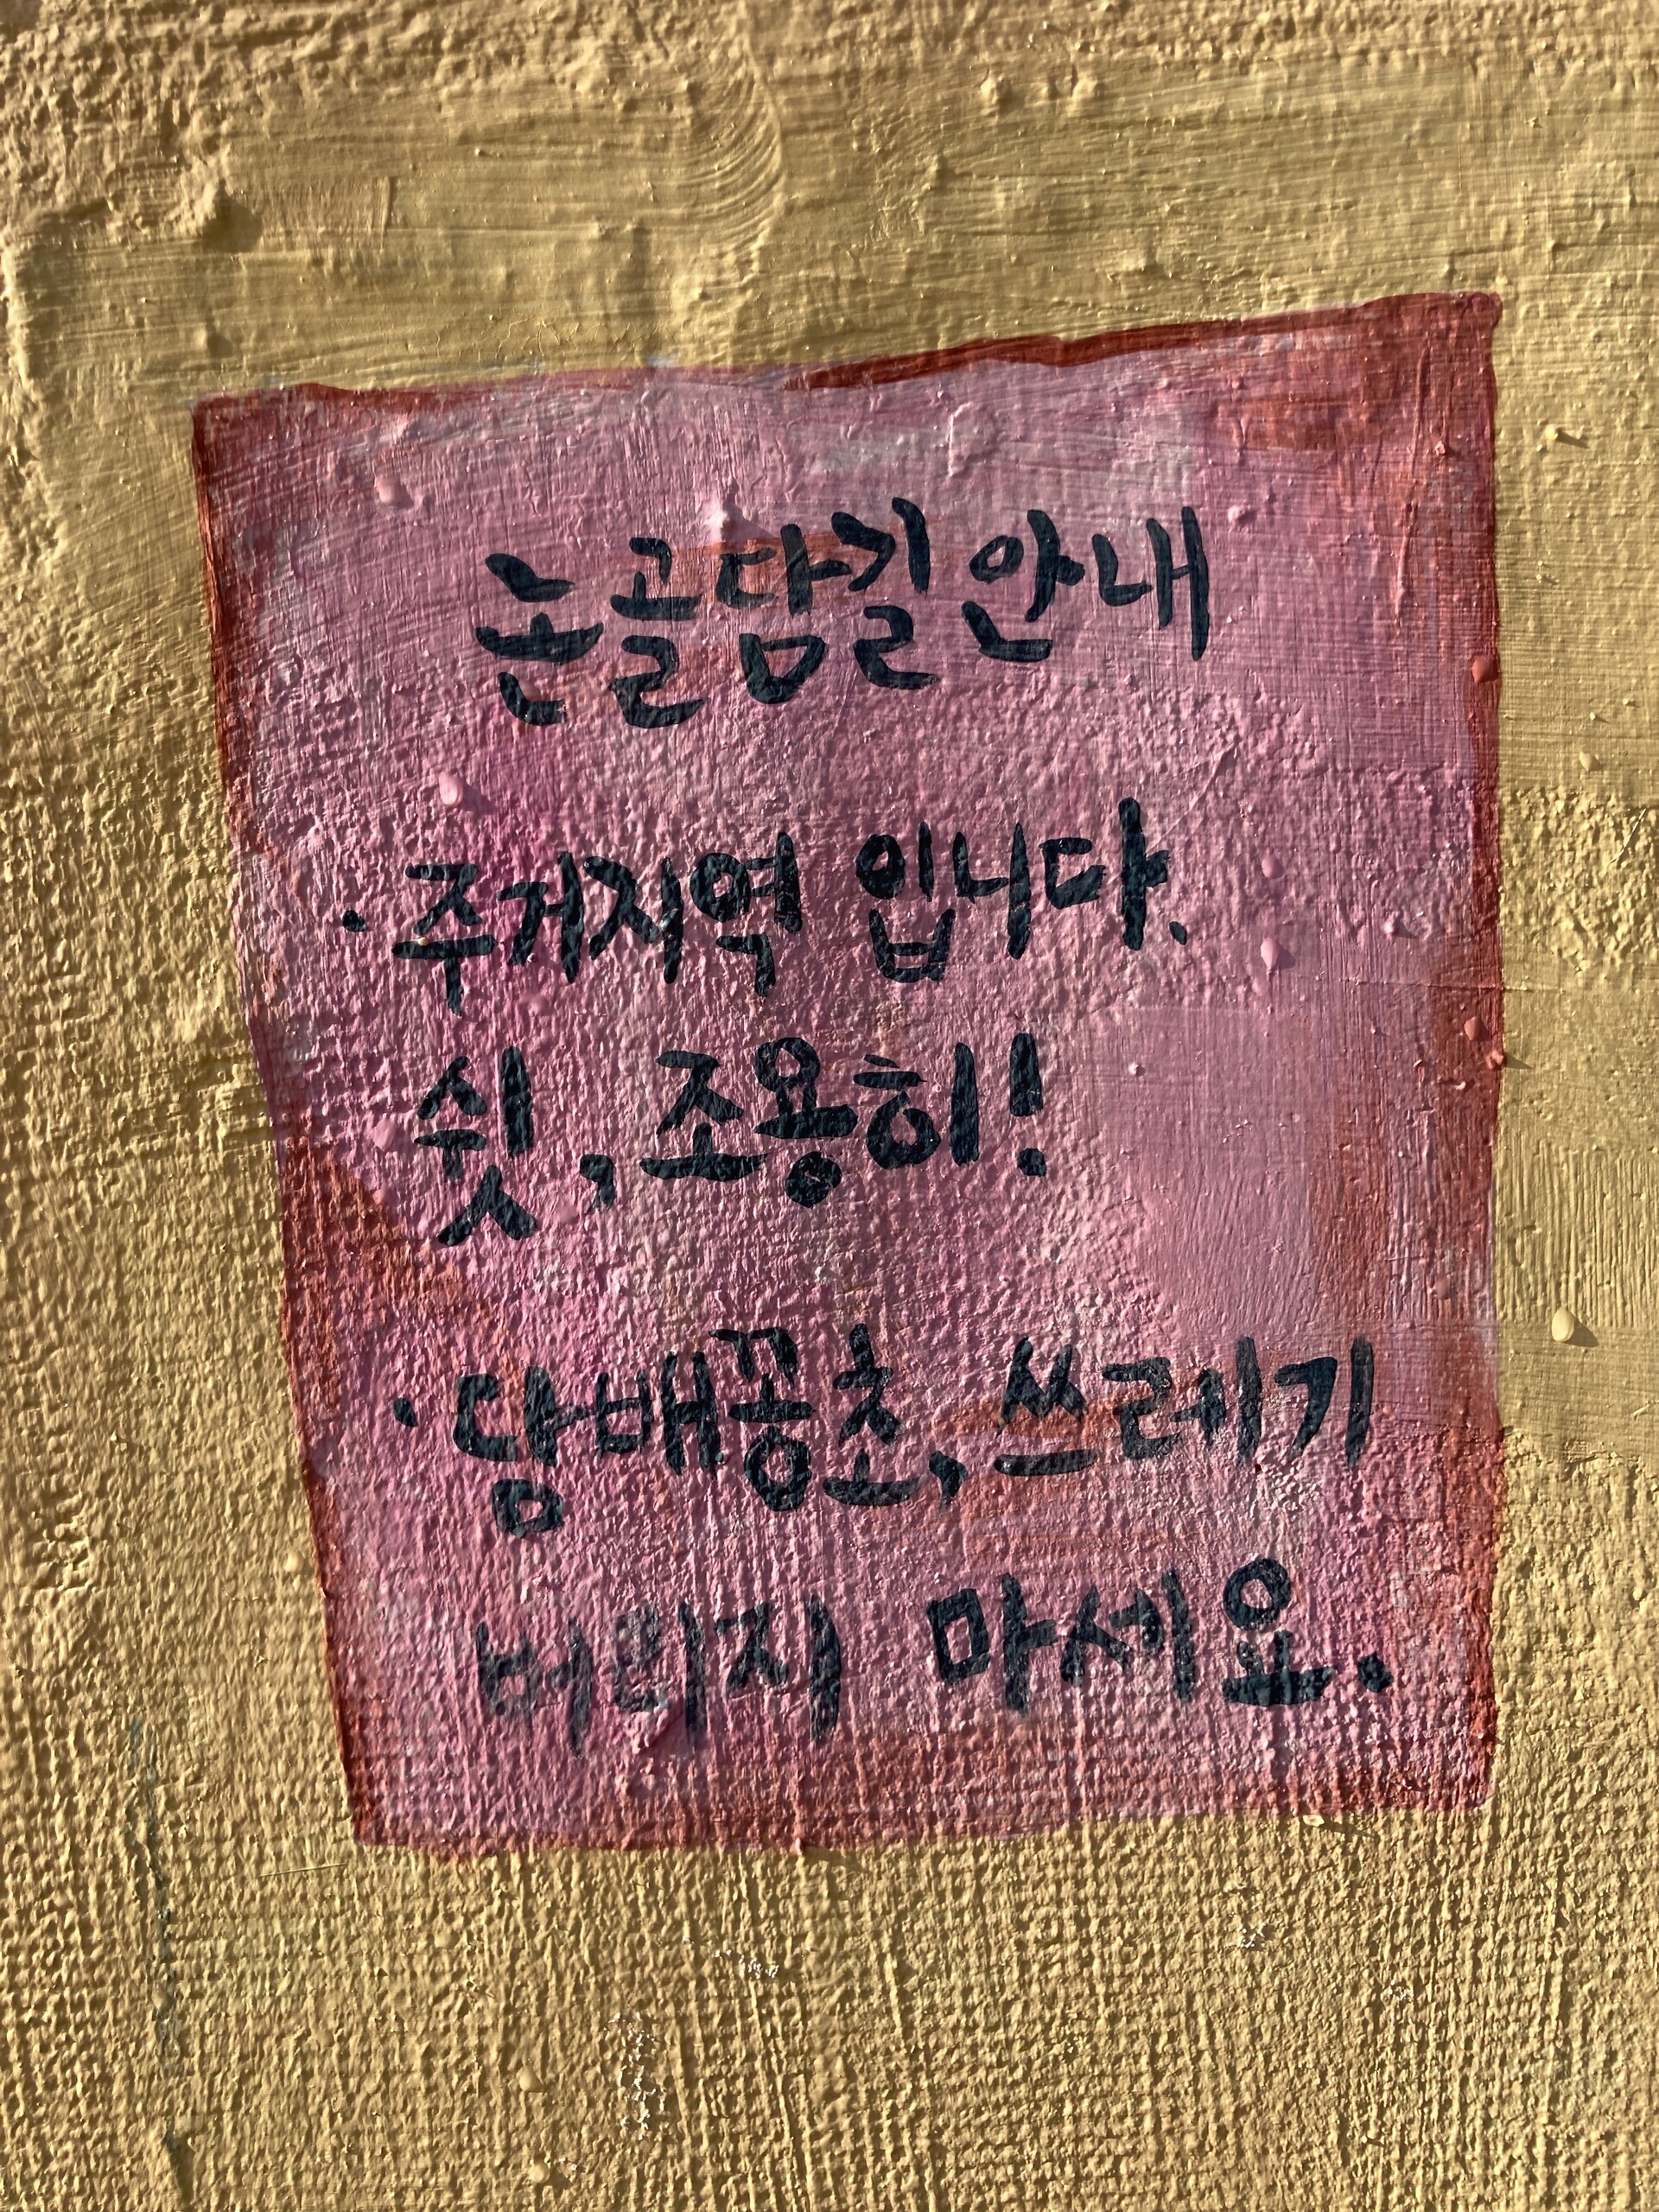 논골담길 안내
· 주거지역 입니다.
쉿, 조용히!
· 담배꽁초, 쓰레기
버리지 마세요.